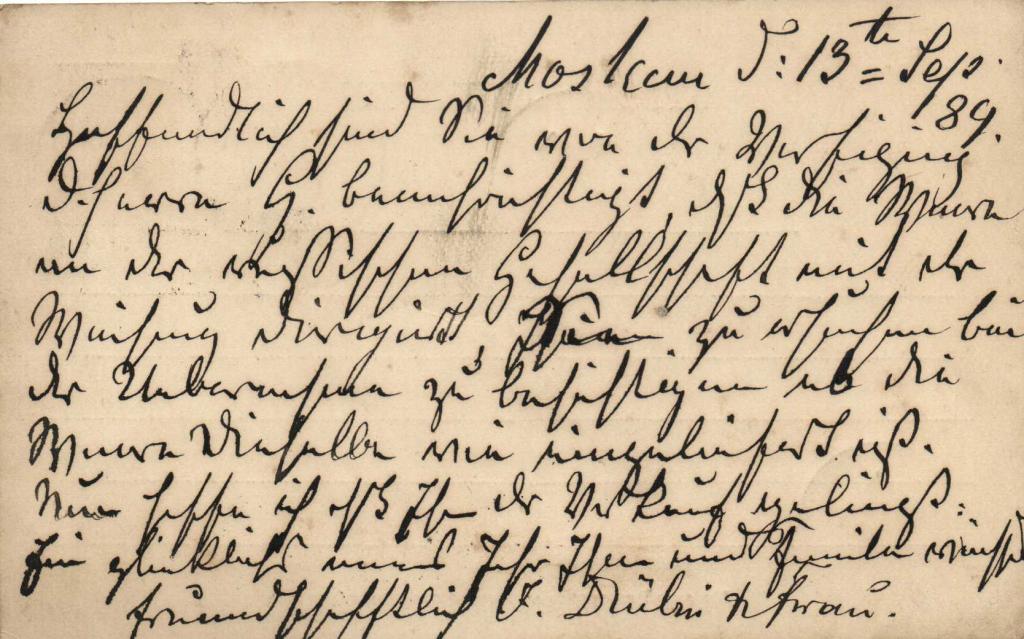 Moskau d: 13te Sep. 89.
Hoffendlich sind Sie von der Verfigung
d. Herrn G. benachrichtigt, daß die Waare
an der russischen Gesellschaft mit der
Weisung dirigirt, zu ersuchen bei
der Uebernahme zu besichtigen ob die
Waare dieselbe wie eingeliefert ist.
Nun hoffe ich daß Ihn der Verkauf gelingt:
Ein glückliches neues Jahr Ihn und Familie wünscht
freundschafftlich J. Rubin & Frau.